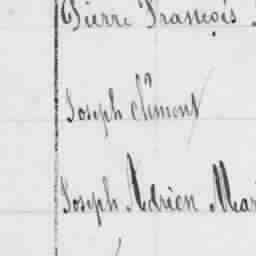 Pierre François
Joseph Clément
Joseph Adrien Mari